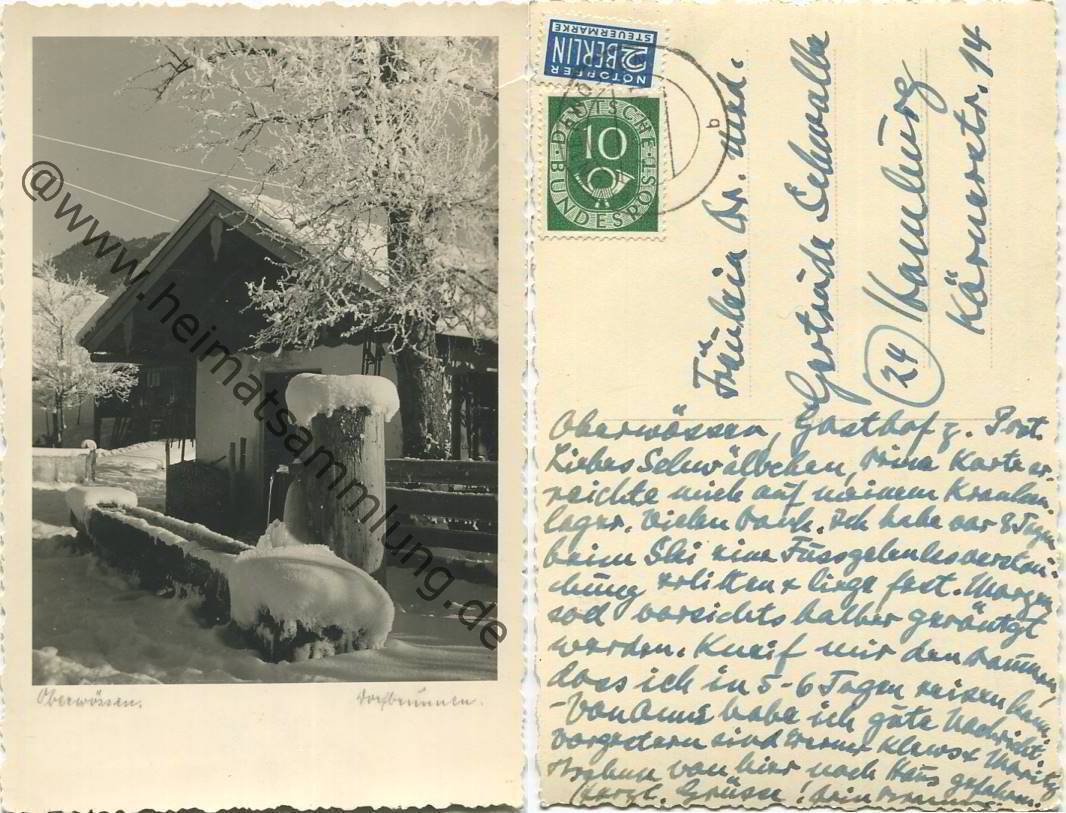 @www.heimatsammlung.de
Oberwössen.
Dorfbrunnen.
NOTOPFER
2 BERLIN
STEUERMARKE
DEUTSCHE
10
BUNDESPOST
b
Fräulein Dr. med.
Gertrude Schwalbe
(24) Hamburg
Kärnerstr. 14
Oberwössen, Gasthof z. Post.
Liebes Schwälbchen, Deine Karte er-
reichte mich auf meinem Kranken-
lager. Vielen Dank. Ich habe vor 8 Tagen
beim Ski eine Fussgelenksverstau-
chung erlitten + liege fest. Morgen
soll vorsichts halber geröntgt
werden. Kneif mir den Daumen,
dass ich in 5-6 Tagen reisen kann.
- Von Anne habe ich gute Nachricht.
Vorgestern sind Werner Klews + Moritz
von hier nach Haus gefahren.
Herzl. Grüsse! Dein